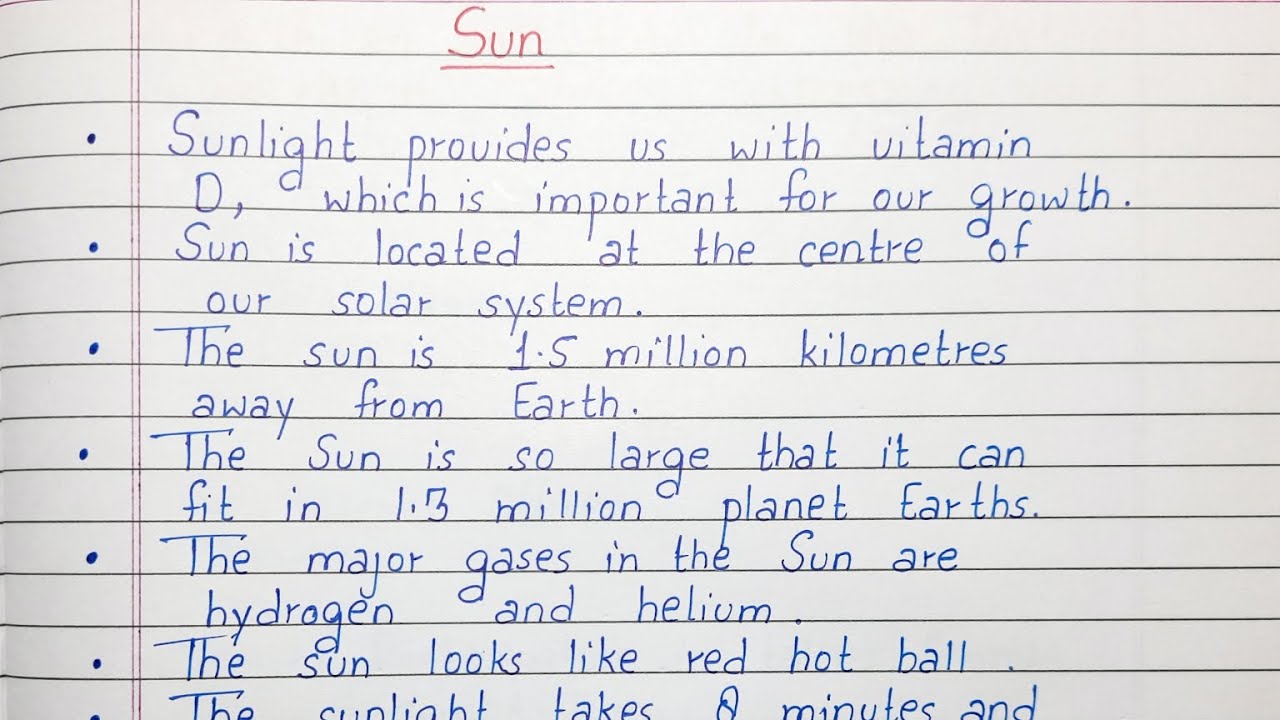 Sun
• Sunlight provides us with vitamin
D, which is important for our growth.
• Sun is located at the centre of
our solar system.
• The sun is 1.5 million kilometres
away from Earth.
• The Sun is so large that it can
fit in 1.3 million planet Earths.
• The major gases in the Sun are
hydrogen and helium.
• The sun looks like red hot ball.
• The sunlight takes 8 minutes and